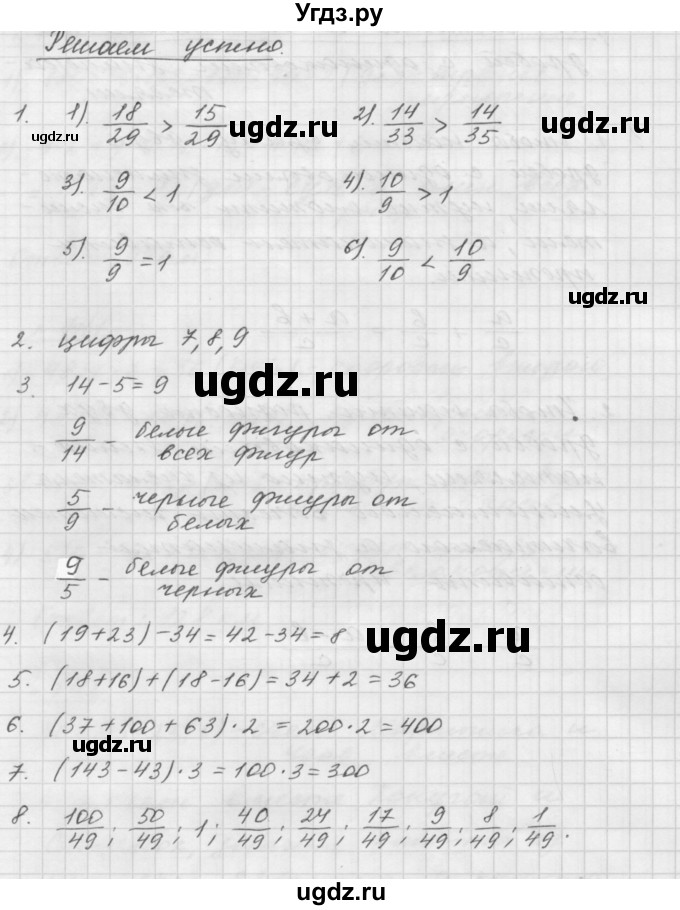 Угдз.ру
Решаем устно.
1. 1). 18/29 > 15/29 2). 14/33 > 14/35
3). 9/10 < 1 4). 10/9 > 1
5). 9/9 = 1 6). 9/10 < 10/9
2. цифры 7, 8, 9
3. 14 - 5 = 9
9/14 - белые фигуры от
всех фигур
5/9 - черные фигуры от
белых
9/5 - белые фигуры от
черных
4. (19 + 23) - 34 = 42 - 34 = 8
5. (18 + 16) + (18 - 16) = 34 + 2 = 36
6. (37 + 100 + 63) · 2 = 200 · 2 = 400
7. (143 - 43) · 3 = 100 · 3 = 300
8. 100/49 ; 50/49 ; 1 ; 40/49 ; 24/49 ; 17/49 ; 9/49 ; 8/49 ; 1/49 .
ugdz.ru
ugdz.ru
ugdz.ru
ugdz.ru
ugdz.ru
ugdz.ru
ugdz.ru
ugdz.ru
ugdz.ru